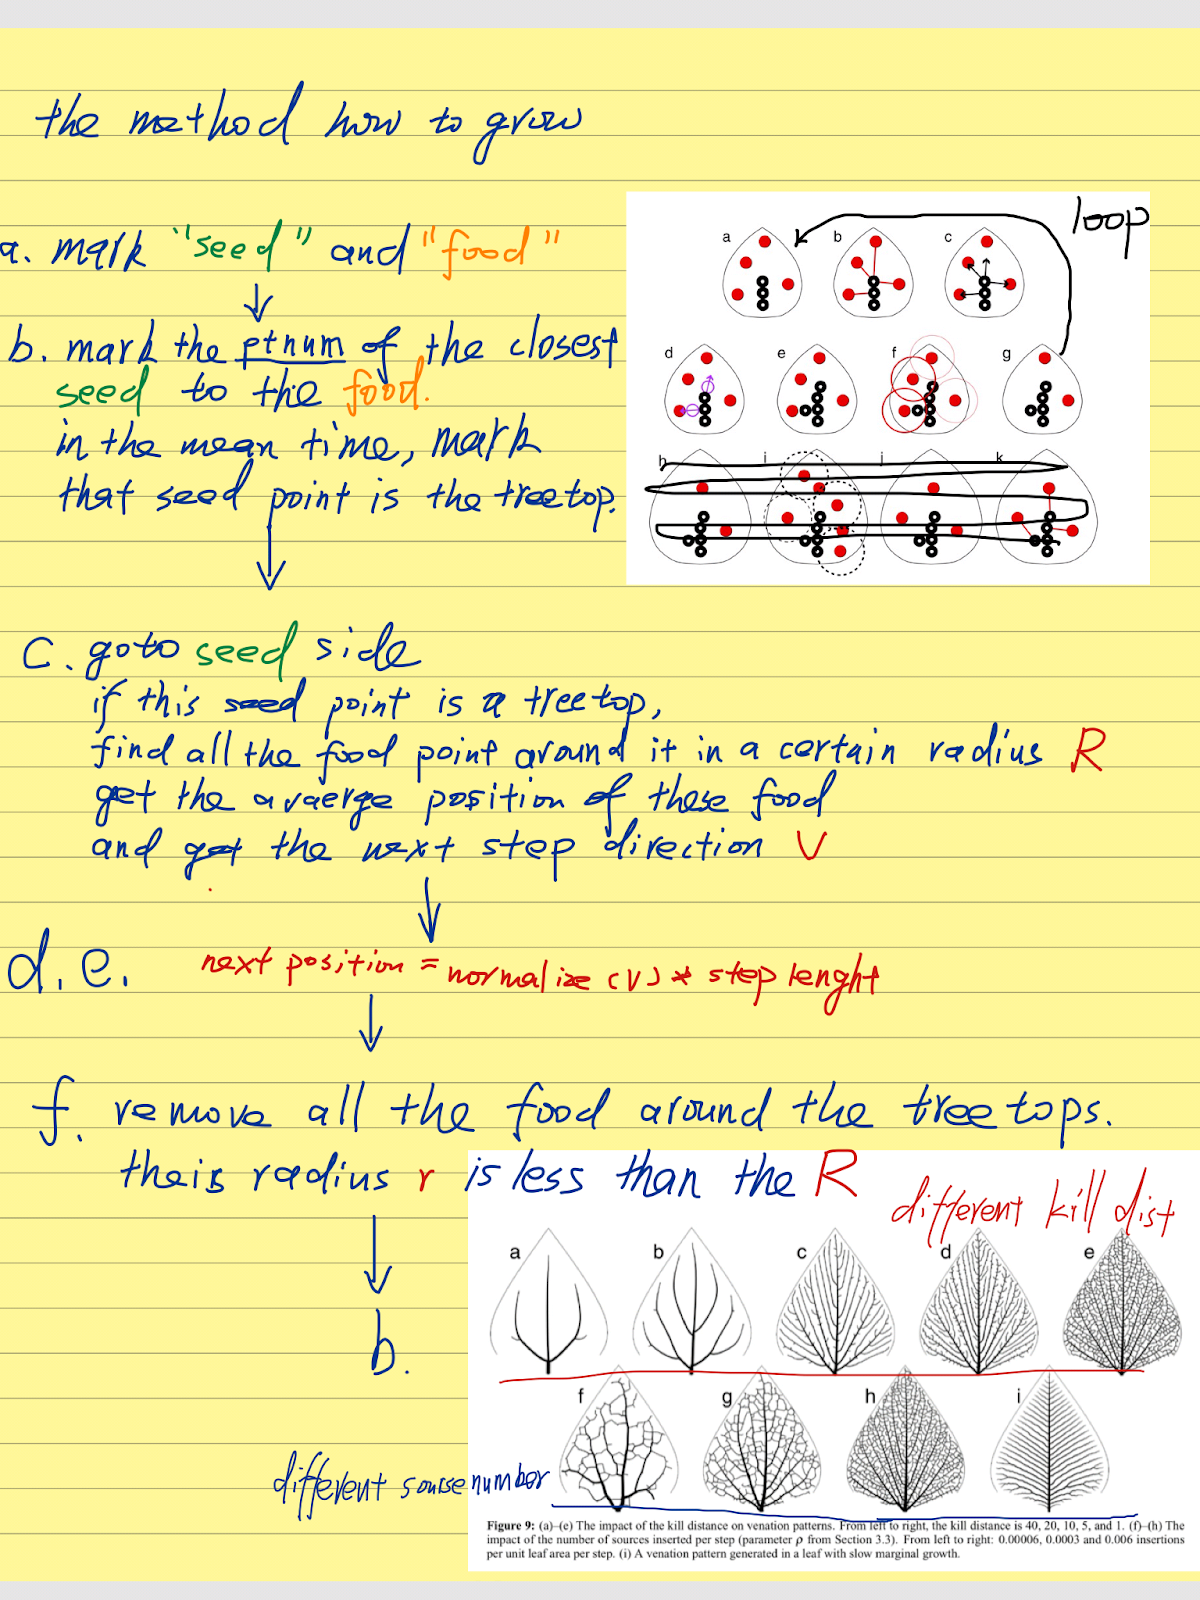 the method how to grow
a. mark "seed" and "food"
b. mark the ptnum of the closest
seed to the food.
in the mean time, mark
that seed point is the treetop.
loop
a b c
d e f g
h i j k
c. goto seed side
if this seed point is a treetop,
find all the food point around it in a certain radius R
get the avaerge position of these food
and get the next step direction V
d. e. next position = normalize (V) * step lenght
f. remove all the food around the treetops.
their radius r is less than the R
b.
different kill dist
a b c d e
f g h i
different sourse number
Figure 9: (a)–(e) The impact of the kill distance on venation patterns. From left to right, the kill distance is 40, 20, 10, 5, and 1. (f)–(h) The
impact of the number of sources inserted per step (parameter ρ from Section 3.3). From left to right: 0.00006, 0.0003 and 0.006 insertions
per unit leaf area per step. (i) A venation pattern generated in a leaf with slow marginal growth.